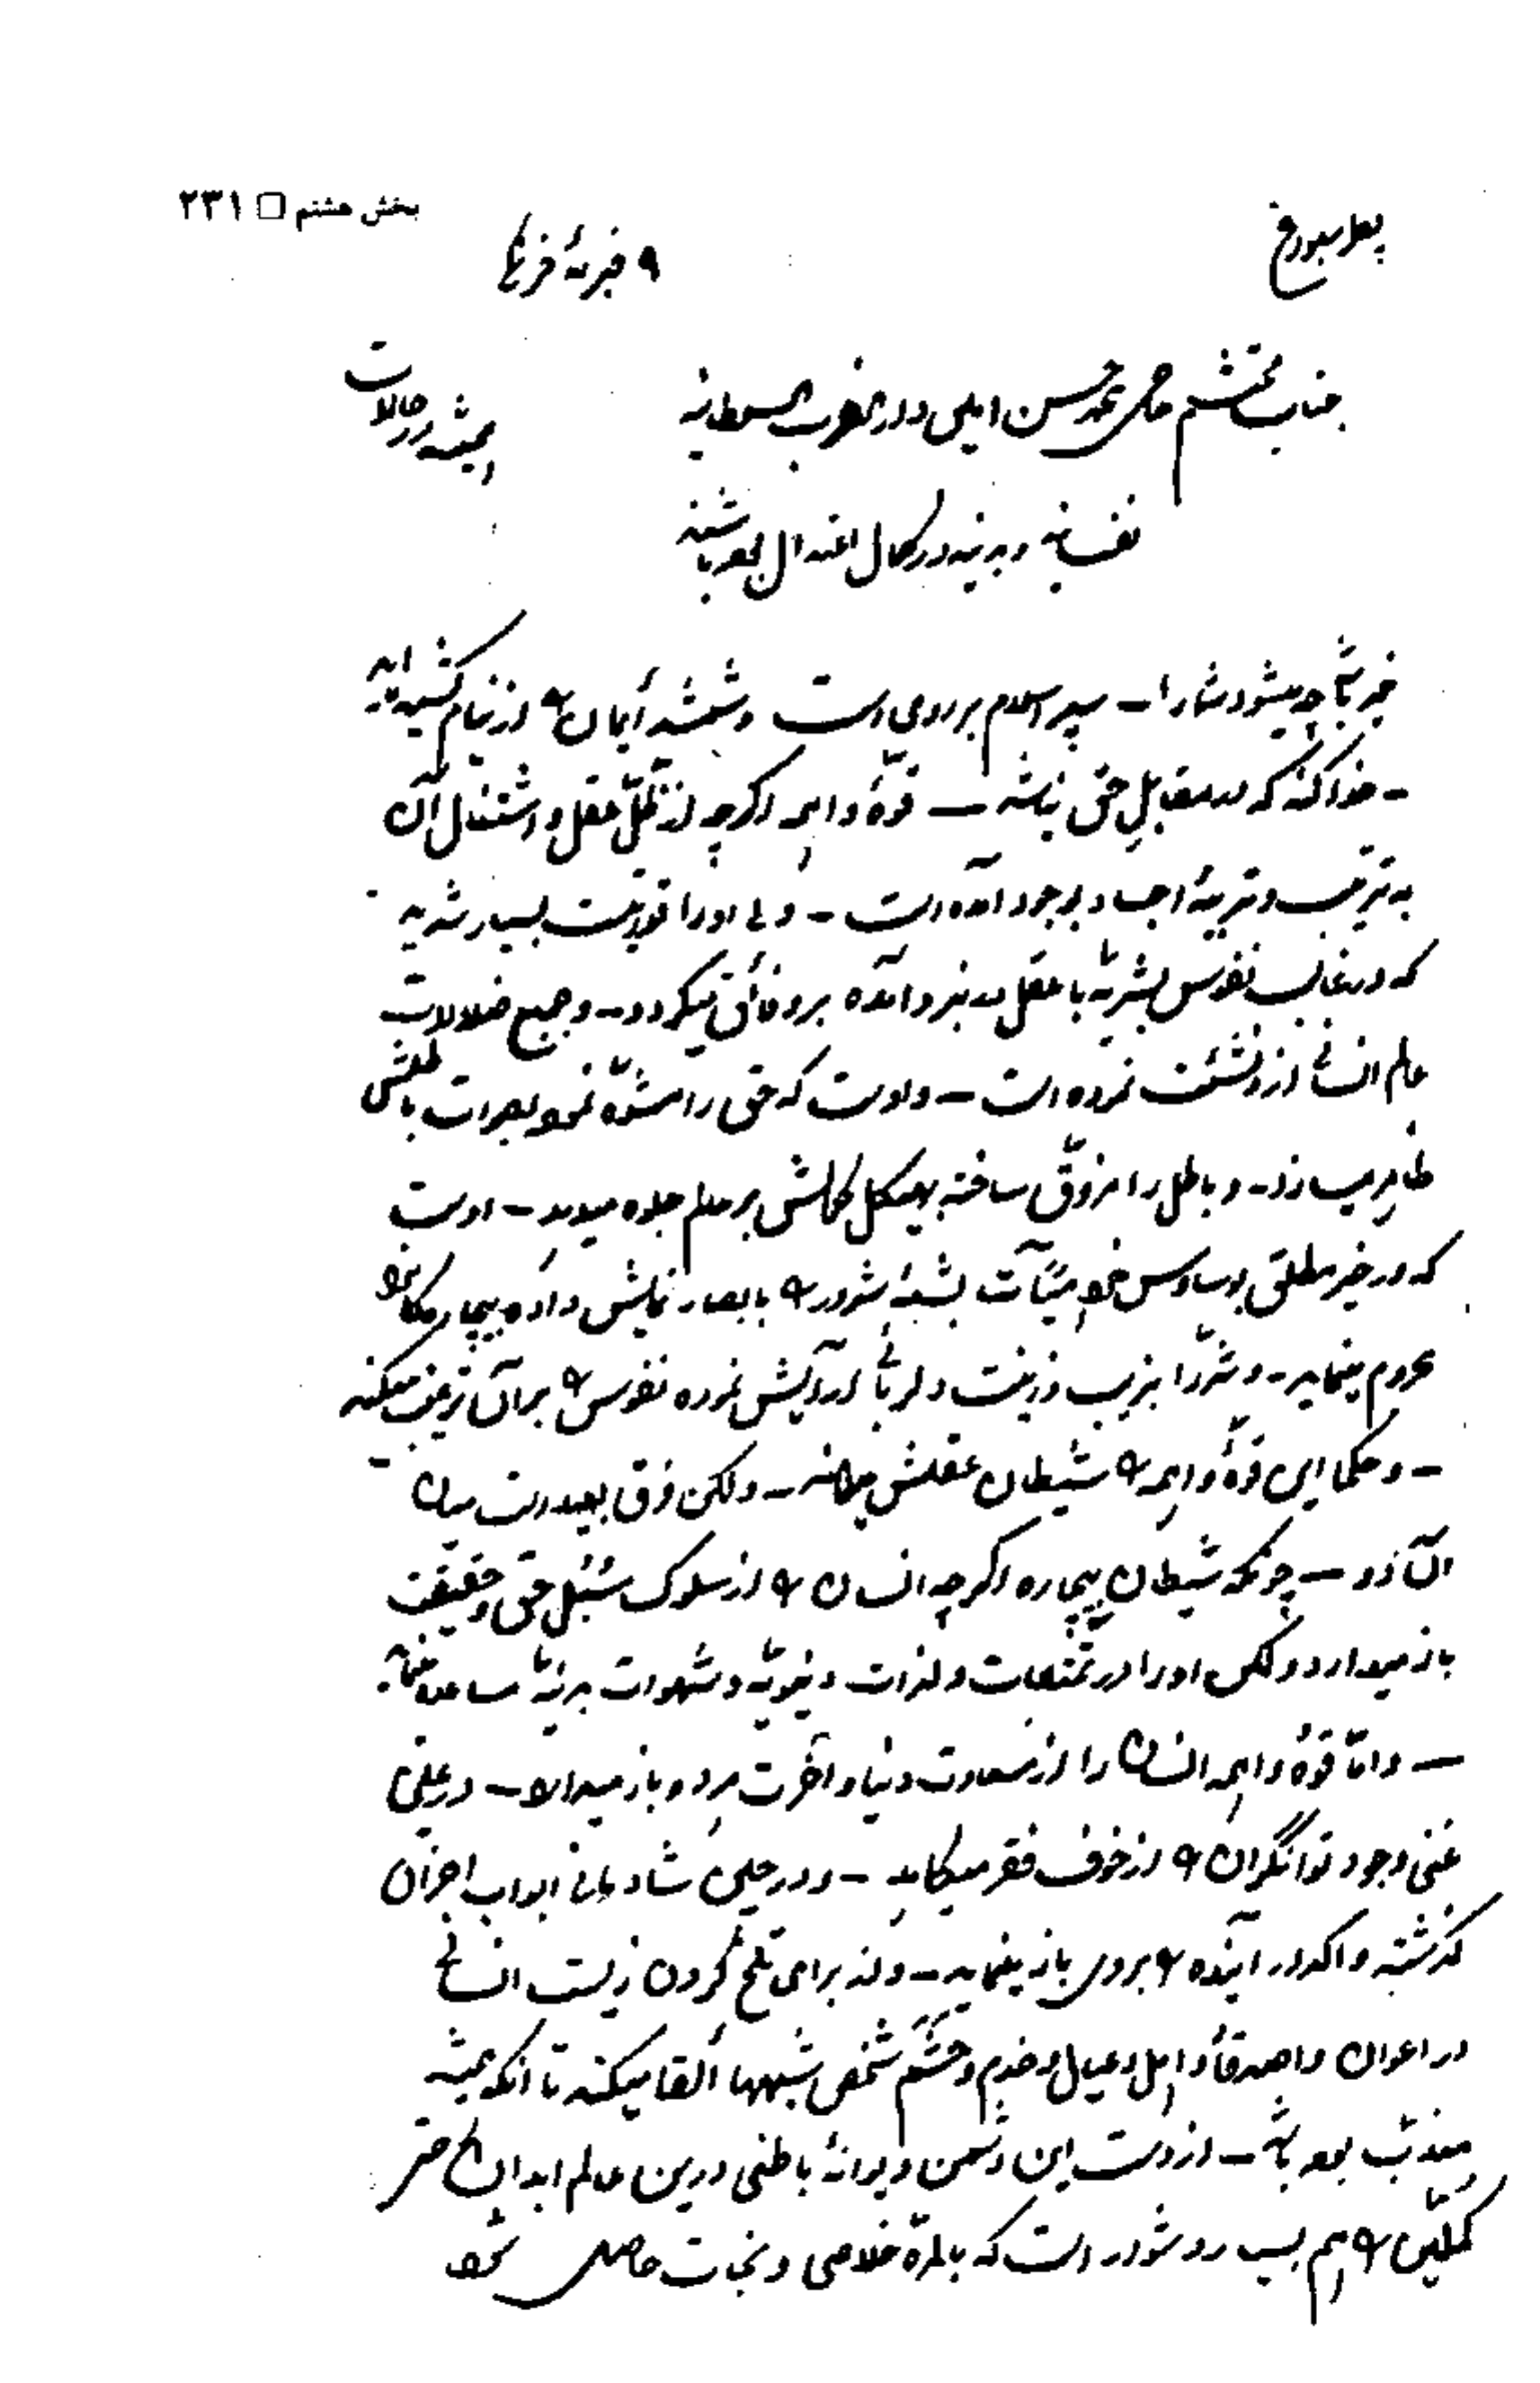 بخش هشتم □ ۲۳۱
پطرسبورغ
۹ فبریهٔ فرنگی
جناب محتشم حاجی محمد حسن امین دارالضرب السلطانیه
همیشه در حالات
نفسانیه و بدنیه در کمال اعتدال بوده باشند
خیر باشد چه میشود شما را - سپر اسلام بر روی است و شمشیر ایمان را از نیام کشیده اید
- خدا نکند که در مقابل حق باشد - قوهٔ واهمه اگرچه از تجلی عقل و اشتغال آن
به ترتیب و تربیهٔ اجساد بوجود آمده است - ولی او را قوتیست بسیار شدید
که در غالب نفوس بشریه با عقل به نبرد آمده بر او فائق میگردد - و جمیع ضلالات
عالم انسانی از او نشئت نموده است - و اوست که حق را مشوه نموده بصورت باطلش
ظاهر میسازد - و باطل را مزوق ساخته بهیکل کمالش بر عالم جلوه میدهد - اوست
که در خیر مطلق بوساوس خود هیئات بشعهٔ شرور را بابصار نمایش داده بیچارگان را
محروم مینماید - و شر را بزیب و زینت دلربائی آرایش نموده نفوس را بر آن ترغیب میکند
- و حکما این قوهٔ واهمه را شیطان عقلش میدانند - ولکن فرق بعید است میان
آن دو - چونکه شیطان بیچاره اگرچه انسان را از سلوک سبل حق و حقیقت
باز میدارد ولکن او را در تمتعات و لذات دنیویه و شهوات بدنیه مساعدت مینماید
- و اما قوهٔ واهمه انسان را از سعادت دنیا و آخرت هر دو باز میدارد - در عین
غنی وجود توانگران را از خوف فقر میکاهد - و در حین شادمانی ابواب احزان
گذشته و اکدار آینده را بروی باز مینماید - و از برای تلخ کردن زیست انسانی
در اعوان و اصدقاء و اهل و عیال و خدم و حشم شخص شبهها القا میکند تا آنکه همیشه
معذب بوده باشد - از دست این دشمن دیوانهٔ باطنی درین عالم ابدان حتی
کملین را هم بسیار دشوار است که بالمره خلاصی و نجات حاصل شود